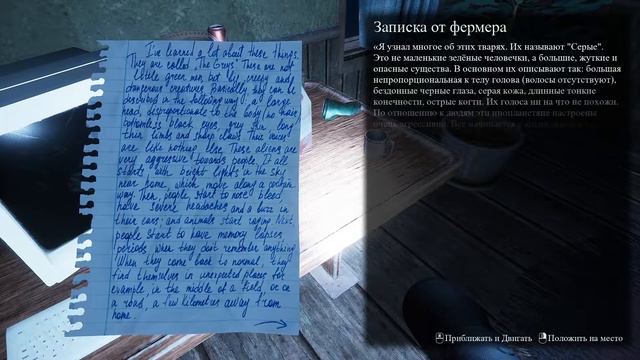 I've learned a lot about these things.
They are called "The Greys". These are not
little green men but big creepy and
dangerous creatures. Basically they can be
described in the following way: a large
head, disproportionate to the body (no hair),
bottomless black eyes, grey skin, long
thin limbs and sharp claws. Their voices
are like nothing else. These aliens are
very aggressive towards people. It all
starts with bright lights in the sky
near home, which move along a certain
way. Then, people start to nose bleed
have severe headaches and a buzz in
their ears, and animals start raging. Next
people start to have memory lapses
periods when they don't remember anything.
When they come back to normal, they
find themselves in unexpected places for
example, in the middle of a field, or on
a road, a few kilometers away from
home.
Записка от фермера
«Я узнал многое об этих тварях. Их называют "Серые".
Это не маленькие зелёные человечки, а большие, жуткие и
опасные существа. В основном их описывают так: большая
непропорциональная к телу голова (волосы отсутствуют),
бездонные черные глаза, серая кожа, длинные тонкие
конечности, острые когти. Их голоса ни на что не похожи.
По отношению к людям эти инопланетяне настроены
очень агрессивно. Все начинается с
Приближать и Двигать Положить на место